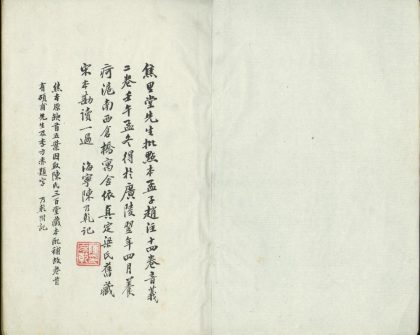 焦里堂先生批點本孟子趙注十四卷音義
二卷壬午孟冬得於廣陵翌年四月養
疴滬南西倉橋寓舍依真定梁氏舊藏
宋本勘讀一過 海寧陳乃乾記
焦本原缺首五葉因取陳氏三百堂藏本配補故卷首
有碩甫先生及李方赤題字 乃乾附記